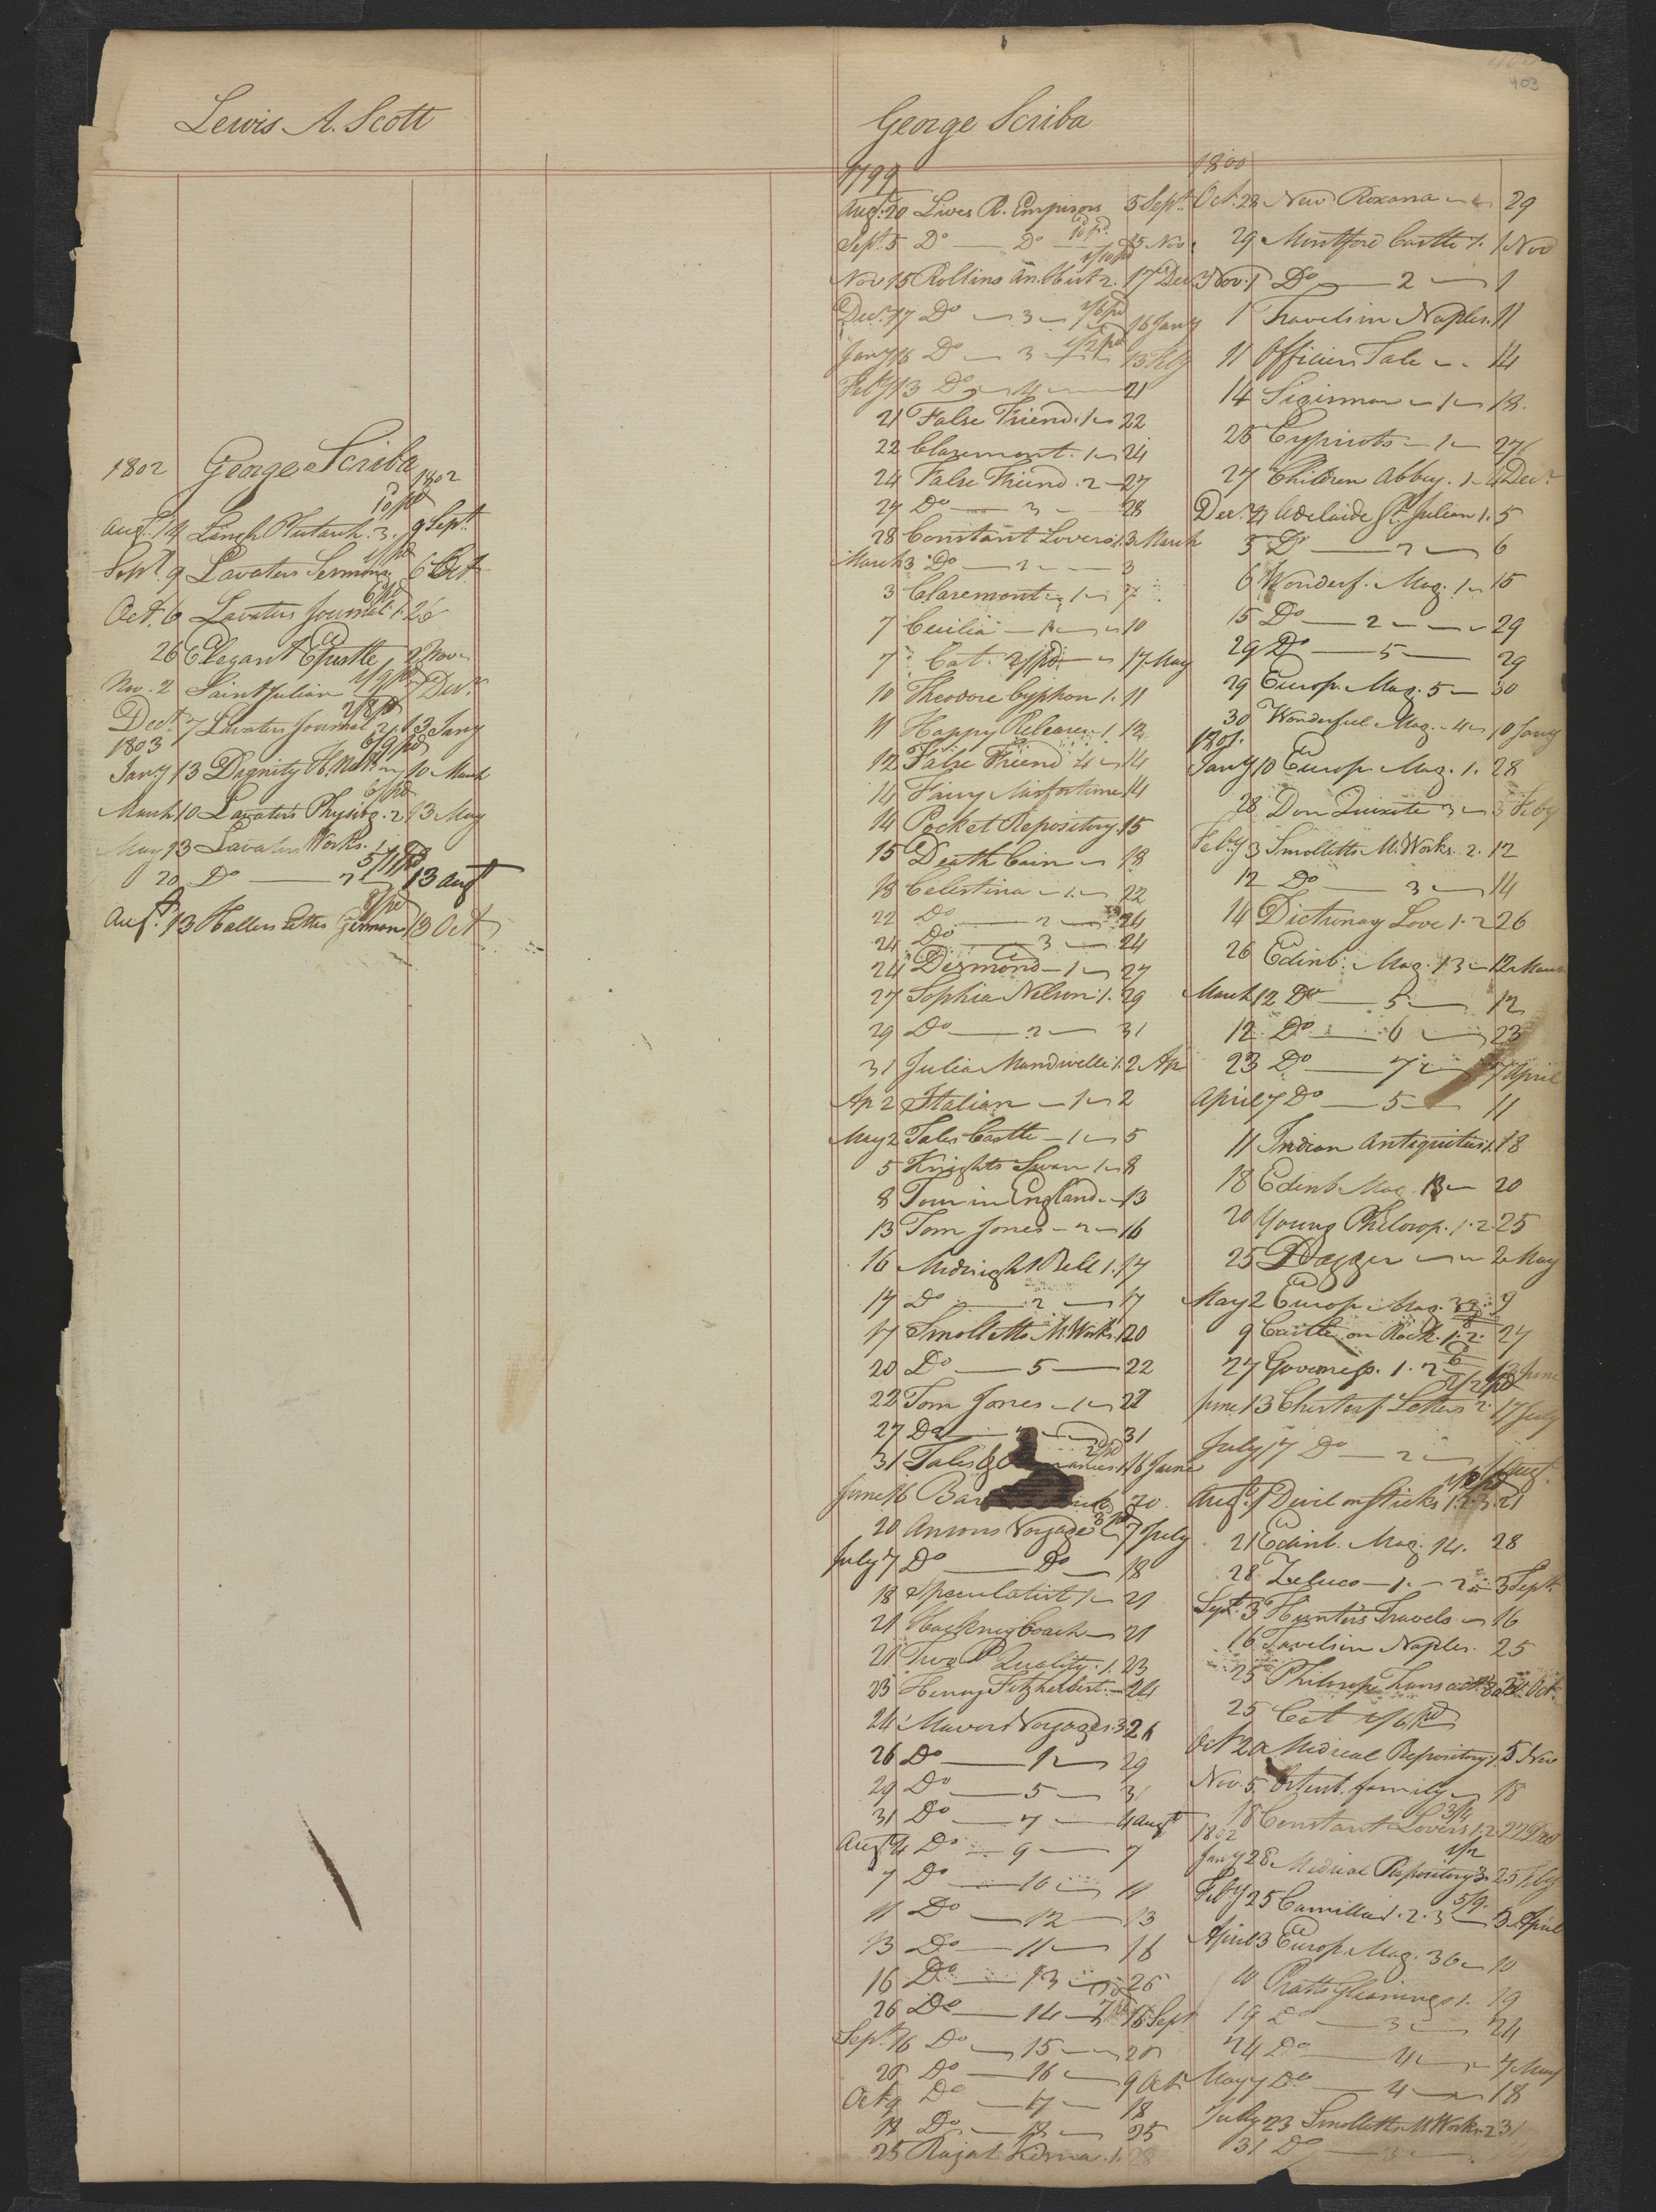 403
Lewis A. Scott
1802 George Scriba 1802
10/pd
Augt. 14 Langh Plutarch. 3. 9 Sept.
/pd
Sept. 9 Lavaters Sermons 6 Oct.
6/pd
Oct. 6 Lavaters Journal 1. 26
26 Elegant Epistle 2 Nov.
1/9 pd
Nov. 2 Saint Julien 7 Decr.
2/8 pd
Decr. 7 Lavaters Journal 2. 13 Jany
1803
6/9 pd
Jany 13 Dignity H. Nat 10 March
6/pd
March 10 Lavaters Physiog. 2 13 May
May 13 Lavaters Works. 1
5/11 pd
20 Do — 2 — 13 augt
8/pd
Augt. 13 Hallers Letters German 13 Oct
George Scriba
1799
Augt. 20 Lives R. Emperors 5 Sept.
10 pd.
Sept. 5 Do — Do — 15 Nov.
1/10 pd
Nov 15 Rollins An. Hist 2. 17 Decr
1/6 pd
Decr. 17 Do — 3 — 16 Jany
1/2 pd
Jany 16 Do — 3 — 13 Feby
Feby 13 Do — 4 — 21
21 False Friend. 1 — 22
22 Claremont. 1 — 24
24 False Friend. 2 — 27
27 Do — 3 — 28
28 Constant Lovers 1. 3 March
March 3 Do — 2 — 3
3 Claremont — 1 — 7
7 Cecilia — 1 — 10
7 Cat. 2/pd — 17 May
10 Theodore Cyphon 1. 11
11 Happy Release. 1 12
12 False Friend 4 — 14
14 Fairy Misfortune 14
14 Pocket Repository. 15
15 Death Cain — 18
18 Celestina — 1 — 22
22 Do — 2 — 24
24 Do — 3 — 24
24 Desmond — 1 — 27
27 Sophia Nelson. 1. 29
29 Do — 2 — 31
31 Julia Mandville 1. 2 Ap
Ap 2 Italian — 1 — 2
May 2 Tales Castle — 1 — 5
5 Knights Swan 1 — 8
8 Tour in England — 13
13 Tom Jones — 2 — 16
16 Midnight Bell 1. 17
17 Do — 2 — 17
17 Smolletts M. Works. 1 20
20 Do — 5 — 22
22 Tom Jones — 1 — 27
27 Do — 31
31 Tales & 16 June
June 16 Bar 20.
3/pd
20 Ansons Voyages 7 July
July 7 Do — Do — 18
18 Speculatist 1 — 21
21 Hackney Coach — 21
21 Two P Quality. 1. 23
23 Henry Fitzherbert. — 24
24 Mavors Voyages. 3 26
26 Do — 1 — 29
29 Do — 5 — 31
31 Do — 7 — 4 augt
Augt 4 Do — 9 — 7
7 Do — 10 — 11
11 Do — 12 — 13
13 Do — 11 — 16
16 Do — 13 — 26
26 Do — 14 — 16 Sept
Sept. 16 Do — 15 — 20
20 Do — 16 — 9 Oct
Oct 9 Do — 17 — 18
18 Do — 18 — 25
25 Rajah Kisna. 1. 28
1800
Oct. 28 New Roxana — 29
29 Montford Castle 1. 1 Nov
Nov. 1 Do — 2 — 1
1 Travels in Naples. 11
11 Officers Tale — 14
14 Sigismar — 1 — 18.
25 Cypriots — 1 — 27
27 Children Abbey. 1 — 4 Decr
Decr. 4 Adelaide St. Julian 1. 5
5 Do — 2 — 6
6 Wonderf. Mag. 1 — 15
15 Do — 2 — 29
29 Do — 5 — 29
29 Europ. Mag. 5 — 30
30 Wonderful Mag. — 4 — 10 Jany
1801.
Jany 10 Europ. Mag. 1. 28
28 Don Quixote 3 — 3 Feby
Feby 3 Smolletts M. Works. 2. 12
12 Do — 3 — 14
14 Dictionary Love 1. 2 26
26 Edinb. Mag. 13 — 12 March
March 12 Do — 5 — 12
12 Do — 6 — 23
23 Do — 7 — 7 April
April 7 Do — 5 — 11
11 Indian Antiquities 1. 18
18 Edinb Mag. 13 — 20
20 Young Philosop. 1. 2. 25
25 Dagger — 2 May
May 2 Europ. Mag. 32. 9
9 Castle on Rock. 1. 2. 27
27 Governess. 1. 2 13 June
2/2 pd
June 13 Chesterf. Letters 2. 17 July
July 17 Do — 2 — 1 Augt.
Augt. 1 Devil on Sticks 1. 2. 3. 21
21 Edinb. Mag. 14. 28
28 Zeluco — 1. — 2 — 3 Sept.
Sept. 3 Hunters Travels — 16
16 Tavels in Naples. 25
25 Philosop. Transact. 20 Oct.
25 Cat 1/6 pd
Oct 20 Medical Repository 1. 5 Nov
Nov. 5. Ortenb. family — 18
3/4
18 Constant Lovers 1. 2 22 Dec
1802
1/2
Jany 28 Medical Repository 3. 25 Feby
5/9.
Feby 25 Camilla 1. 2. 3 — 3 April
April 3 Europ. Mag. 36 — 10
10 Pratts Gleanings 1. 19
19 Do — 3 — 24
24 Do — 4 — 7 May
May 7 Do — 4 — 18
July 23 Smolletts M Works. 2 31
31 Do — 3 —